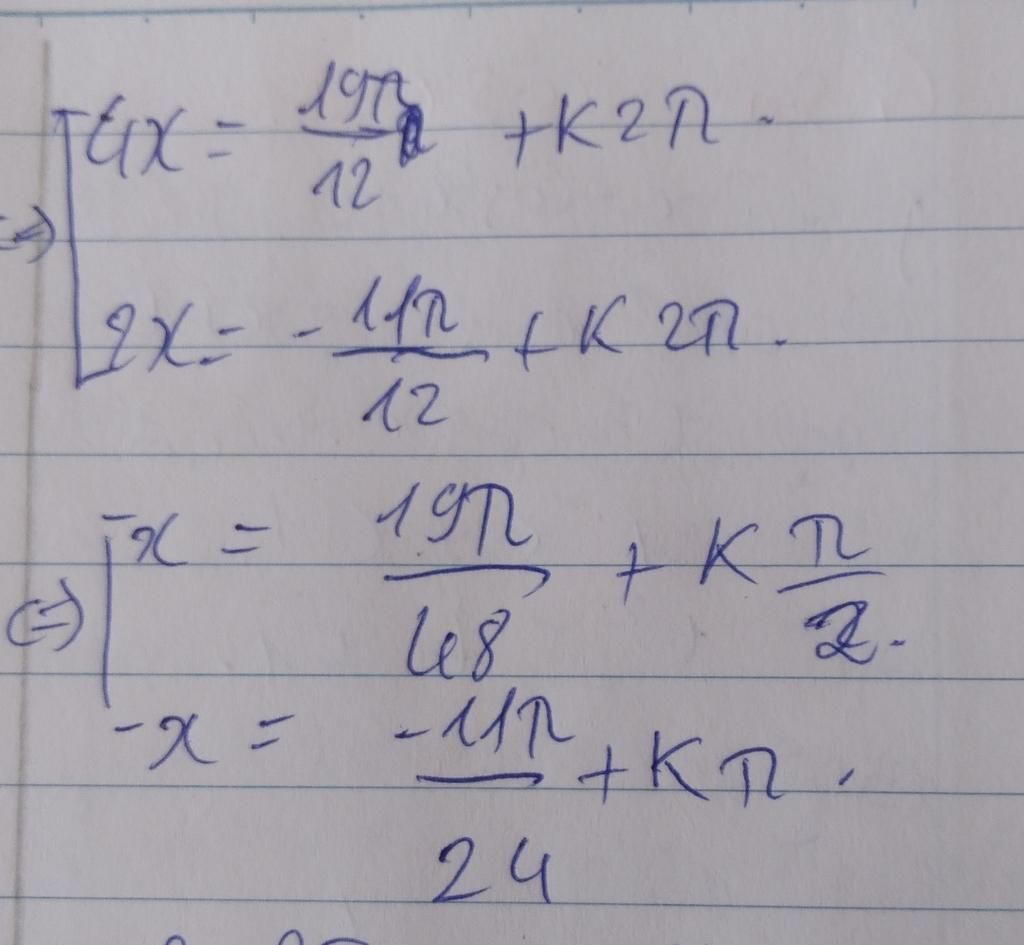 ⇔ [ 4x = 19π/12 + K2π.
2x = -11π/12 + K2π.
⇔ [ x = 19π/48 + K π/2.
x = -11π/24 + Kπ.